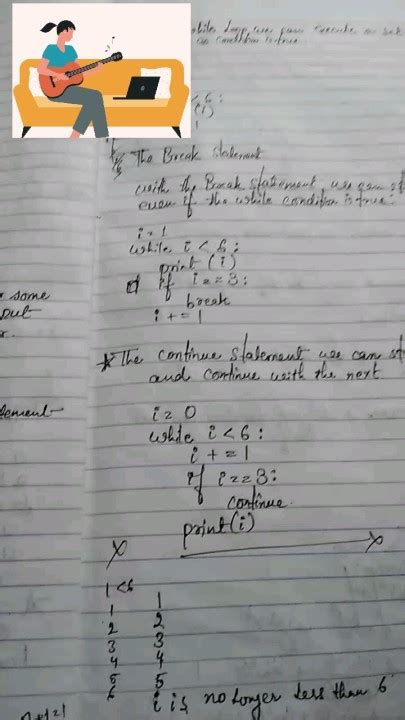 while loop we can execute a set
as condition is true.
< 6 :
(i)
1
The Break statement
with the Break statement, we can st
even if the while condition is true:
i = 1
while i < 6 :
print (i)
if i == 3 :
break
i += 1
some
put
* The continue statement we can st
and continue with the next
tement
i = 0
while i < 6 :
i + = 1
if i == 3 :
continue.
print(i)
X X
1 < 6
1 1
2 2
3 3
4 4
5 5
6 i is no longer less than 6